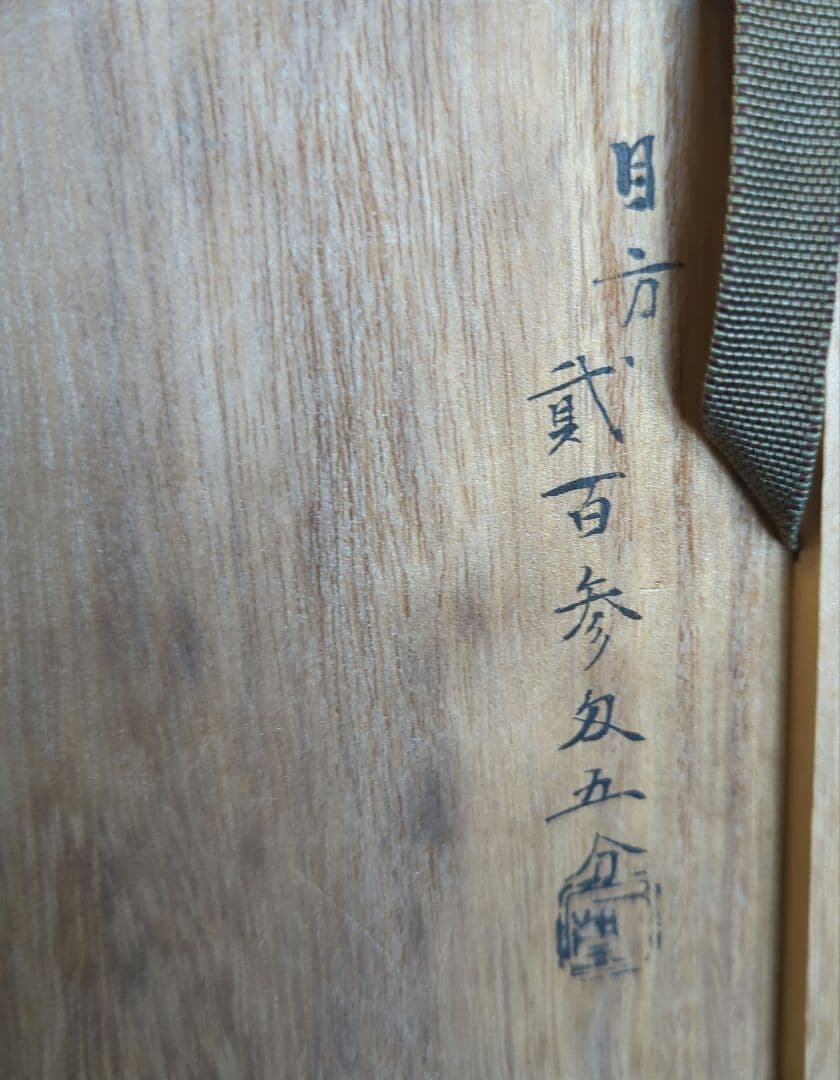 目方
貳百参匁五分